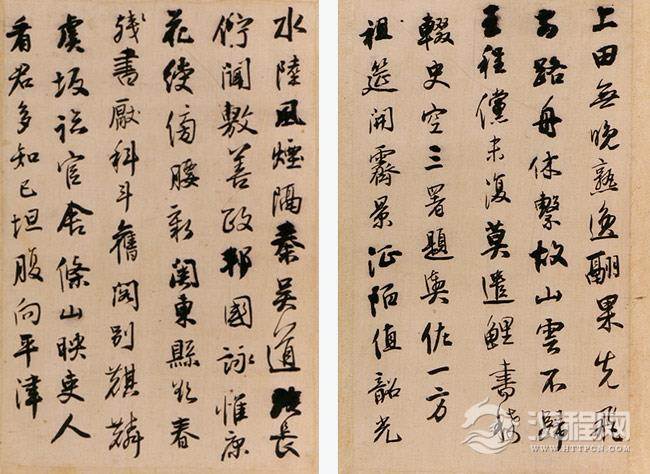 上田無晚熟逸翮果先飛
路舟休繫故山雲不歸
王程儻未復莫遣鯉書稀
輟史空三署題輿佐一方
祖筵開霽景征陌值韶光
水陸風煙隔秦吳道路長
佇聞敷善政邦國詠惟康
花綬傍腰新關東縣欲春
殘書厭科斗舊閣別麒麟
虞坂臨官舍條山映吏人
看君多知己坦腹向平津
汉程网
HTTPCN.COM